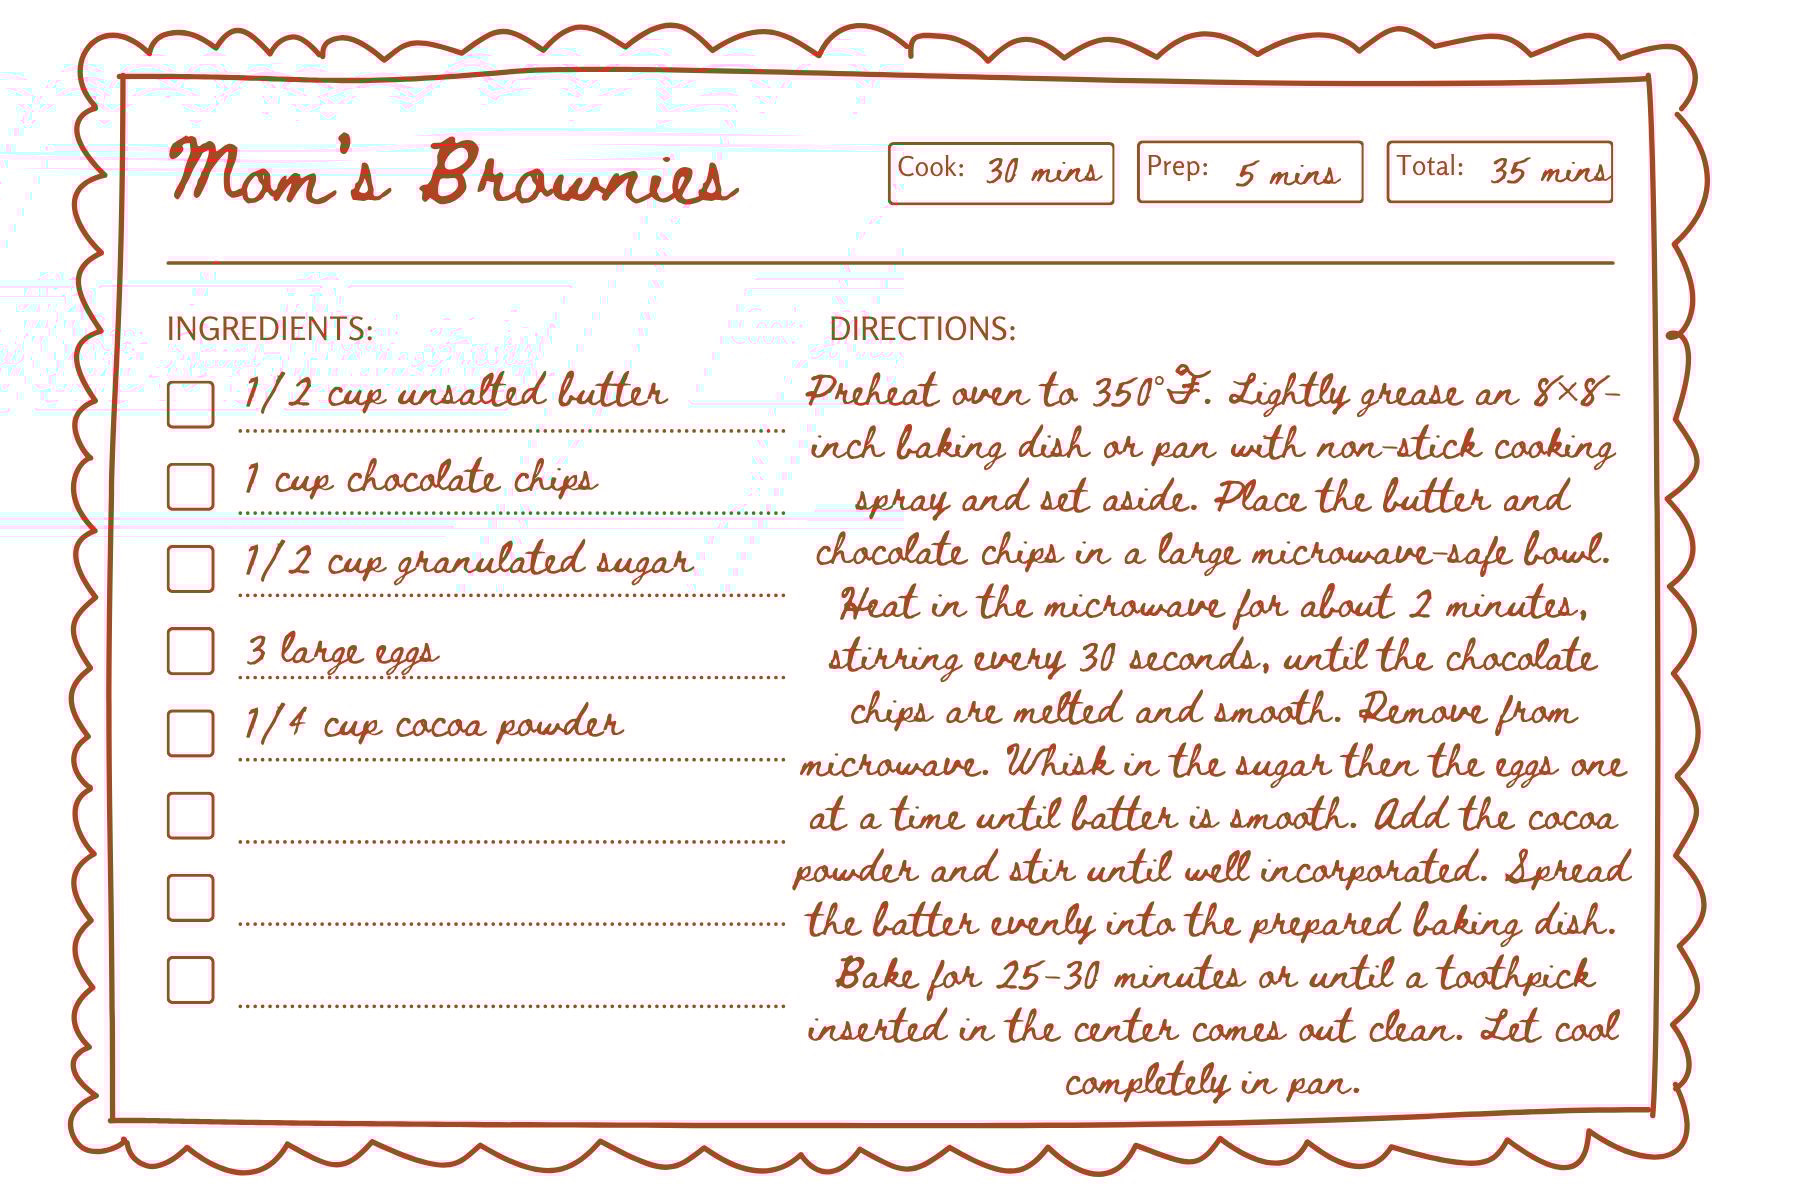 Mom's Brownies
Cook: 30 mins
Prep: 5 mins
Total: 35 mins
INGREDIENTS:
1/2 cup unsalted butter
1 cup chocolate chips
1/2 cup granulated sugar
3 large eggs
1/4 cup cocoa powder
DIRECTIONS:
Preheat oven to 350°F. Lightly grease an 8×8-
inch baking dish or pan with non-stick cooking
spray and set aside. Place the butter and
chocolate chips in a large microwave-safe bowl.
Heat in the microwave for about 2 minutes,
stirring every 30 seconds, until the chocolate
chips are melted and smooth. Remove from
microwave. Whisk in the sugar then the eggs one
at a time until batter is smooth. Add the cocoa
powder and stir until well incorporated. Spread
the batter evenly into the prepared baking dish.
Bake for 25-30 minutes or until a toothpick
inserted in the center comes out clean. Let cool
completely in pan.